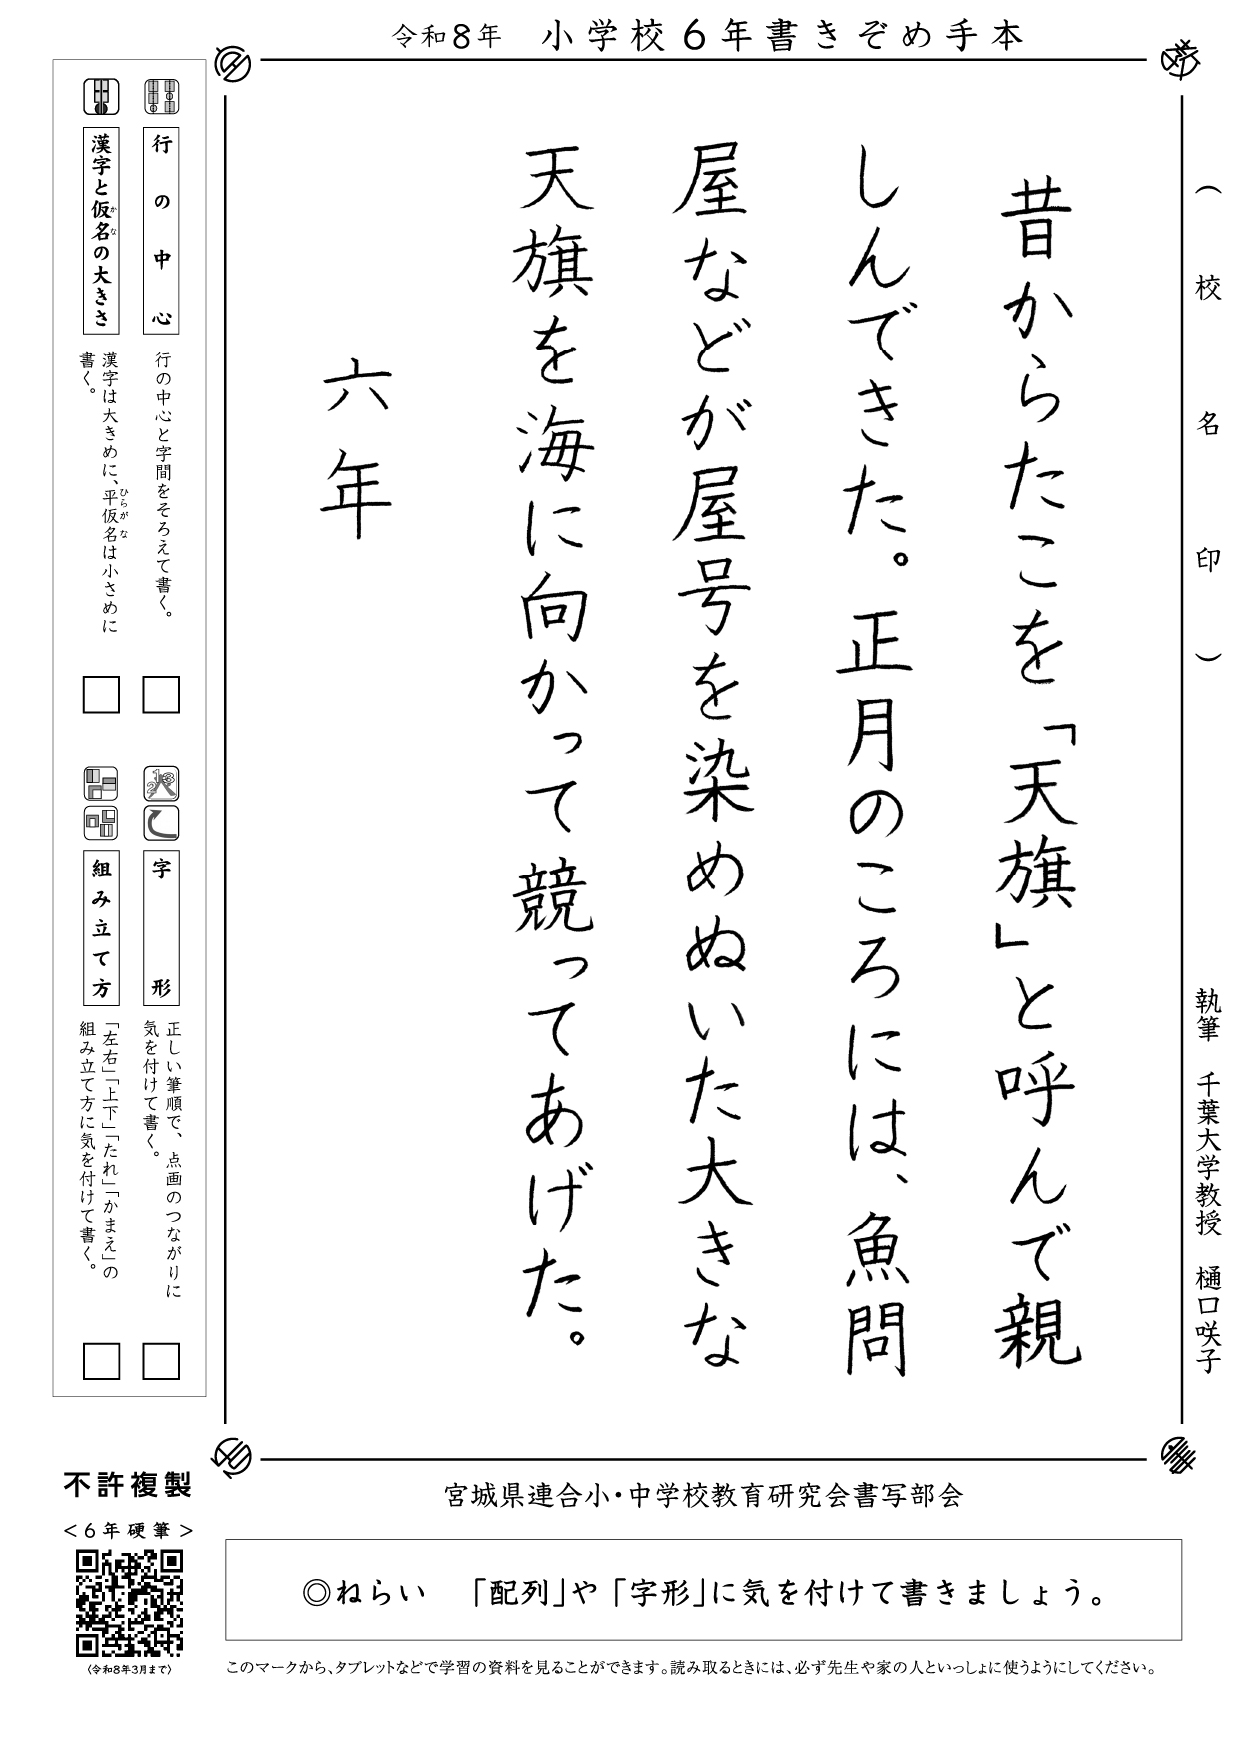 令和8年　小学校6年書きぞめ手本
（校名印）
執筆　千葉大学教授　樋口咲子
昔からたこを「天旗」と呼んで親
しんできた。正月のころには、魚問
屋などが屋号を染めぬいた大きな
天旗を海に向かって競ってあげた。
六年
行の中心
行の中心と字間をそろえて書く。
漢字と仮名の大きさ
かな
漢字は大きめに、平仮名は小さめに
ひらがな
書く。
字形
正しい筆順で、点画のつながりに
気を付けて書く。
組み立て方
「左右」「上下」「たれ」「かまえ」の
組み立て方に気を付けて書く。
宮城県連合小・中学校教育研究会書写部会
不許複製
＜6年硬筆＞
（令和8年3月まで）
◎ねらい　「配列」や「字形」に気を付けて書きましょう。
このマークから、タブレットなどで学習の資料を見ることができます。読み取るときには、必ず先生や家の人といっしょに使うようにしてください。